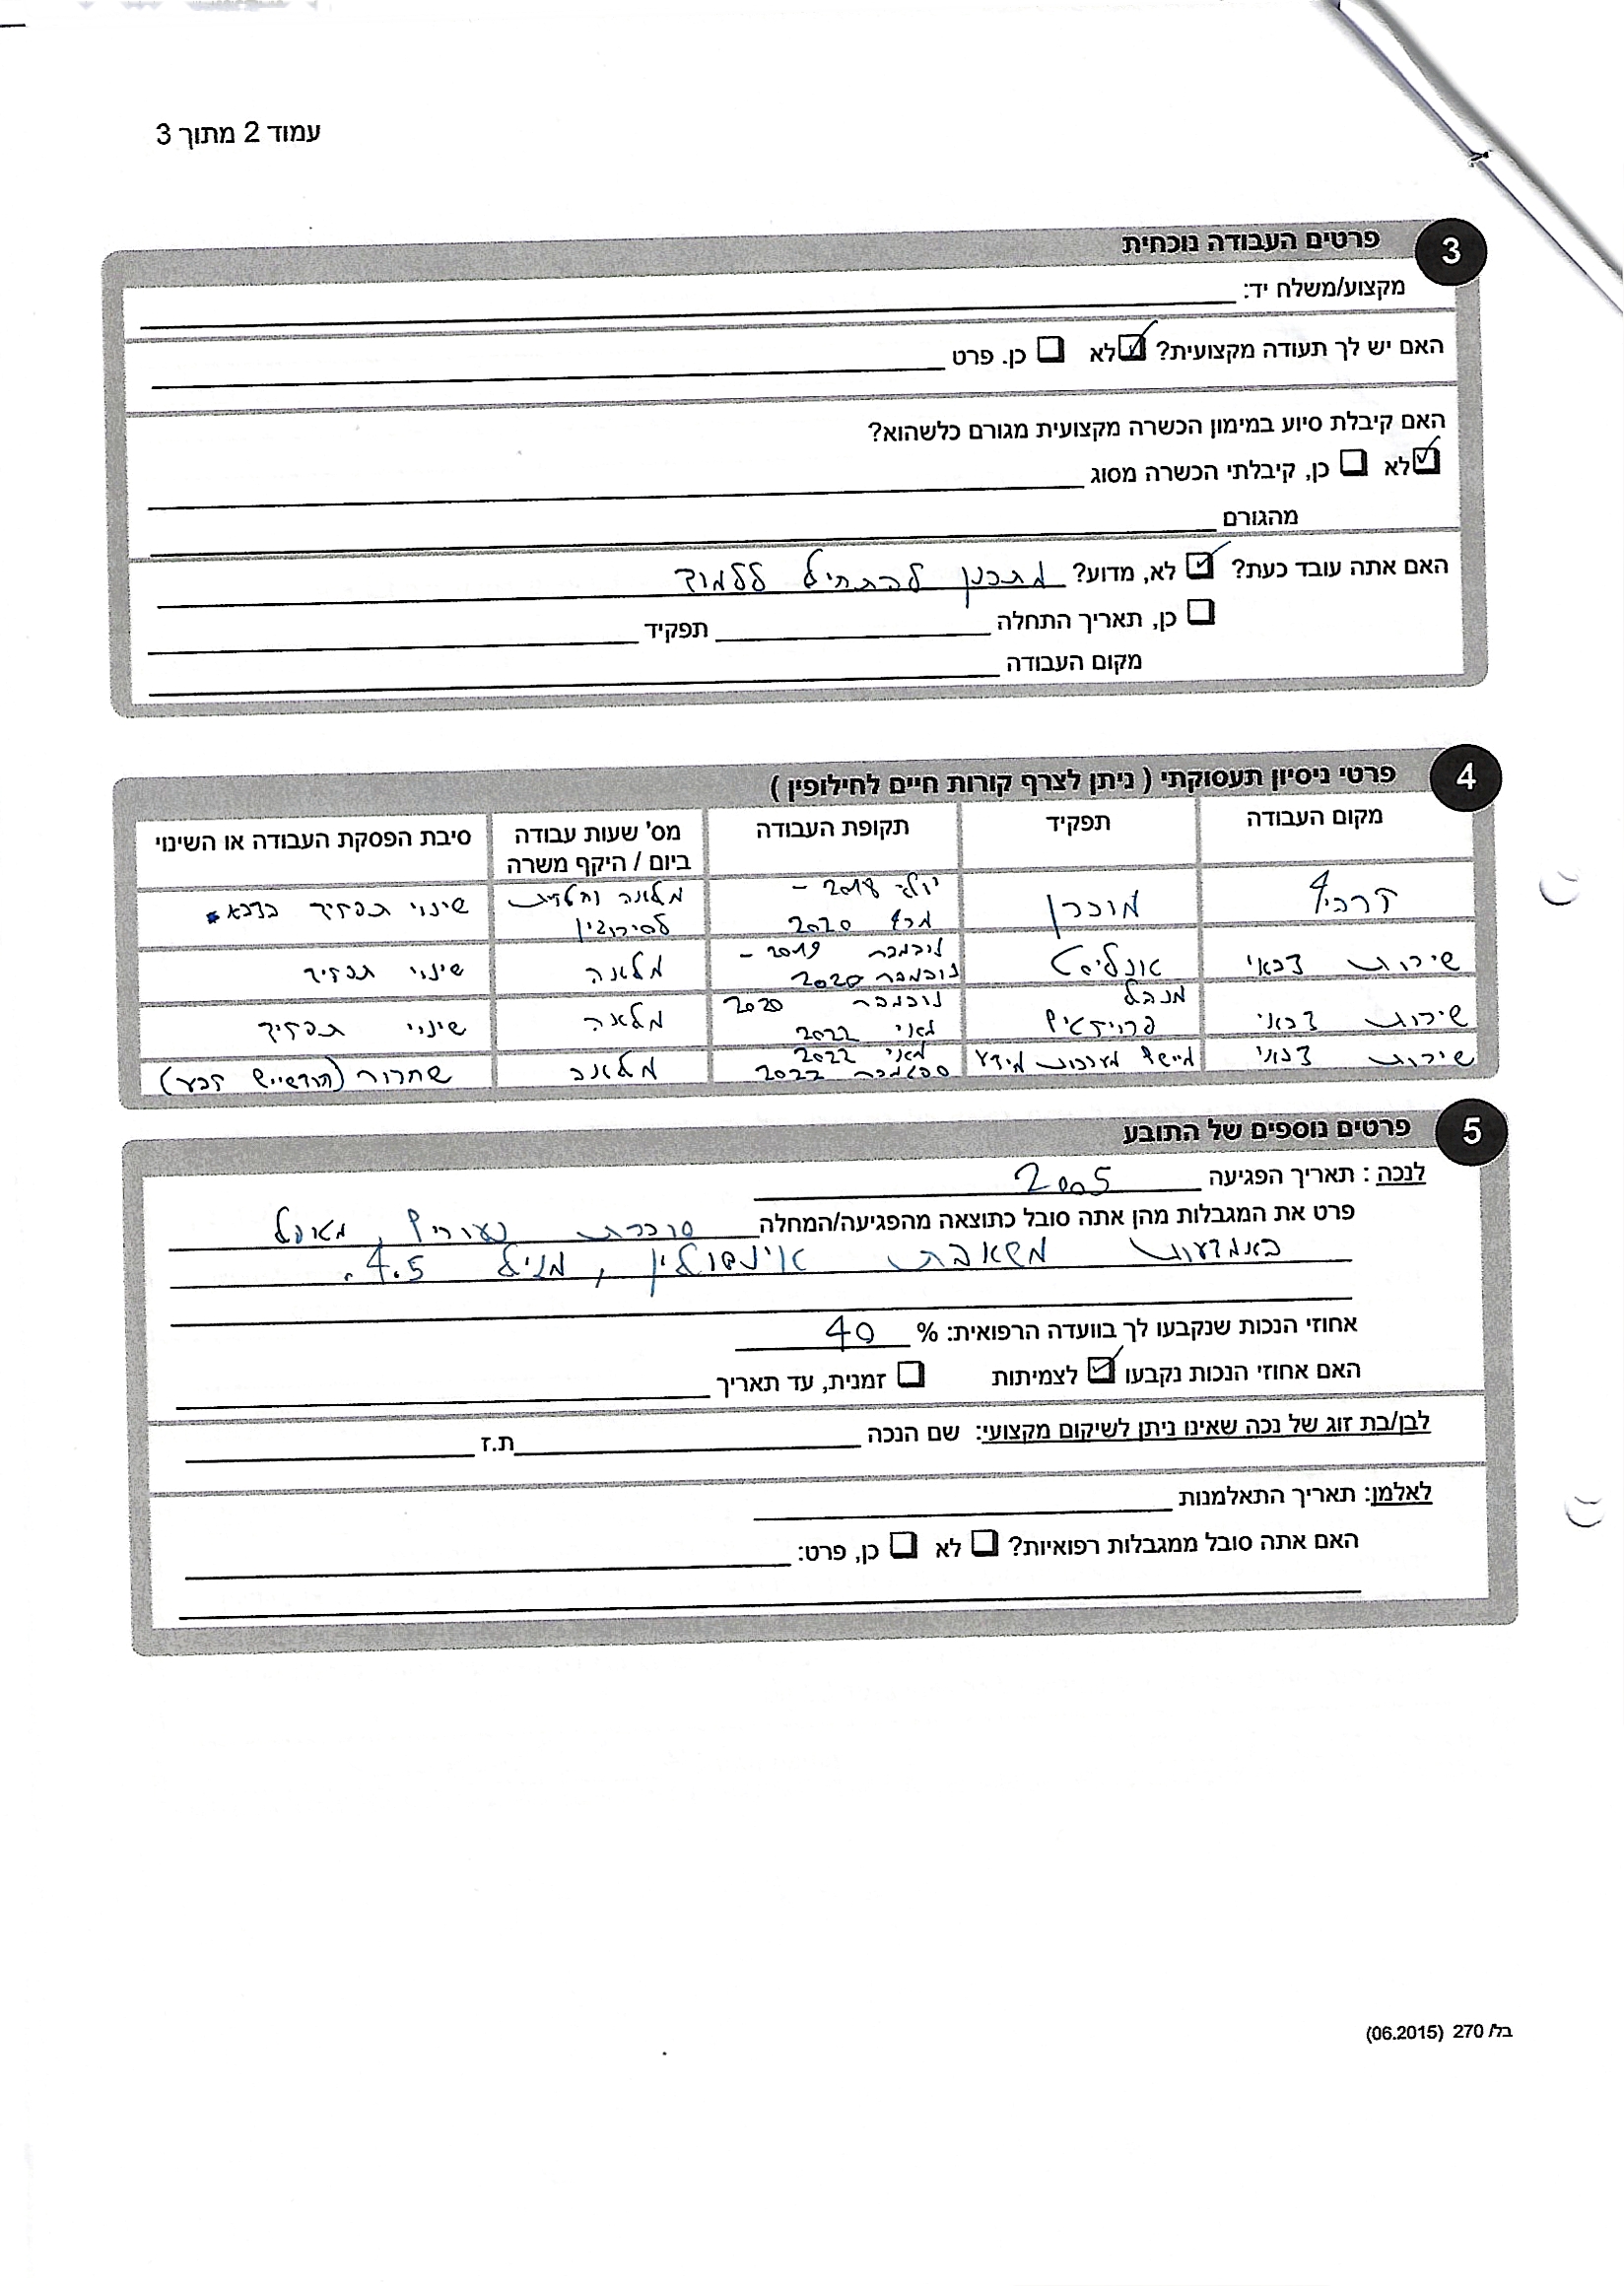 עמוד 2 מתוך 3
3 פרטים העבודה נוכחית
מקצוע/משלח יד:
האם יש לך תעודה מקצועית? לא כן. פרט
האם קיבלת סיוע במימון הכשרה מקצועית מגורם כלשהוא?
לא כן, קיבלתי הכשרה מסוג
מהגורם
האם אתה עובד כעת? לא, מדוע? מתכנן להתחיל ללמוד
כן, תאריך התחלה תפקיד
מקום העבודה
4 פרטי ניסיון תעסוקתי ( ניתן לצרף קורות חיים לחילופין )
מקום העבודה תפקיד תקופת העבודה מס' שעות עבודה סיבת הפסקת העבודה או השינוי
ביום / היקף משרה
מוכרן יולי 2018 - מלאה שינוי תפקיד בצבא
מרץ 2020 לסירוגין
שירות צבאי אנליסט נובמבר 2019 - מלאה שינוי תפקיד
נובמבר 2020
שירות צבאי מנהל נובמבר 2020 מלאה שינוי תפקיד
פרויקטים מאי 2022
שירות צבאי מיישם מערכות מידע מאי 2022 מלאה שחרור (חודשיים קבע)
ספטמבר 2022
5 פרטים נוספים של התובע
לנכה : תאריך הפגיעה 2005
פרט את המגבלות מהן אתה סובל כתוצאה מהפגיעה/המחלה סוכרת נעורים,
באמצעות משאבת אינסולין, מגיל 4.5.
אחוזי הנכות שנקבעו לך בוועדה הרפואית: % 40
האם אחוזי הנכות נקבעו לצמיתות זמנית, עד תאריך
לבן/בת זוג של נכה שאינו ניתן לשיקום מקצועי: שם הנכה ת.ז
לאלמן: תאריך התאלמנות
האם אתה סובל ממגבלות רפואיות? לא כן, פרט:
בל/ 270 (06.2015)